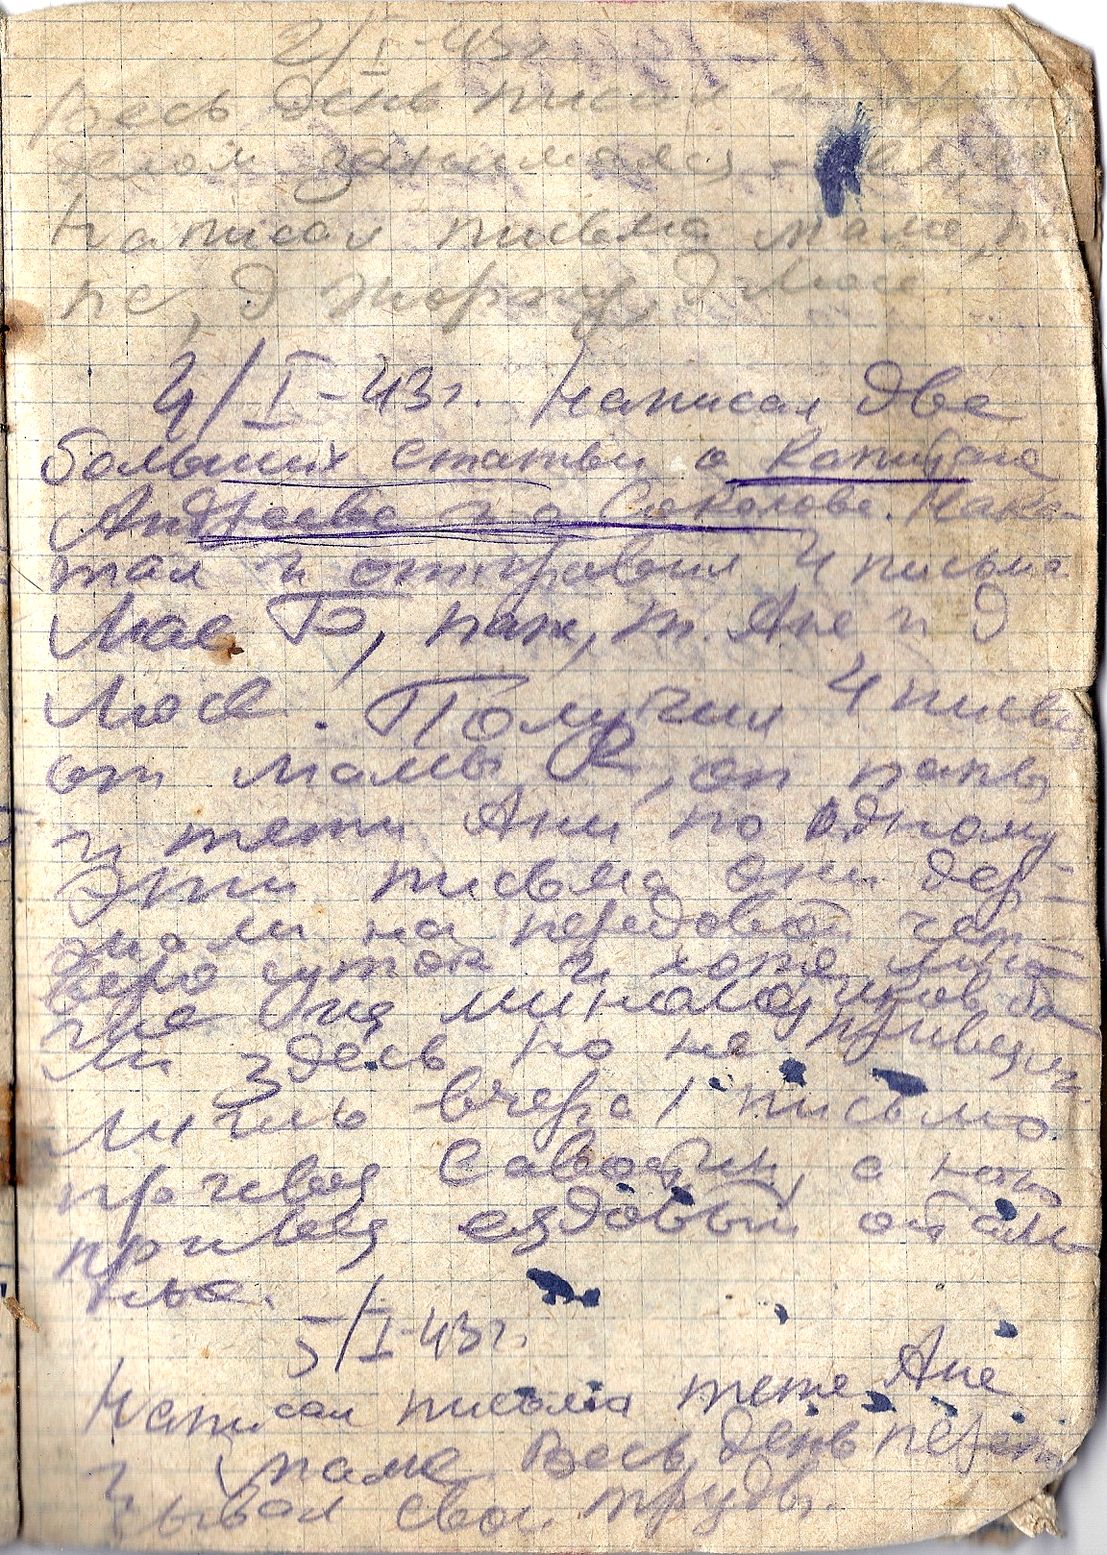 2/I-43г.
Весь день писал и
делом занимался -
Написал письма маме, па
пе, д Жоржу, д Люсе.
4/I-43г. Написал две
больших статьи о капитане
Андрееве и о Соколове. Нака
тал и отправил 4 письма
Люе Б, папе, т. Ане и д
Люсе. Получил 4 письма
от мамы 2, от папы
и тети Ани по одному
Эти письма они дер-
жали на передовой чет-
веро суток и хотя
ли здесь но не привезли
лишь вчера 1 письмо
привез Савостин, а
привез ездовый
5/I-43г.
Написал письма тете Ане
и маме Весь день перепи
сывал свои труды.